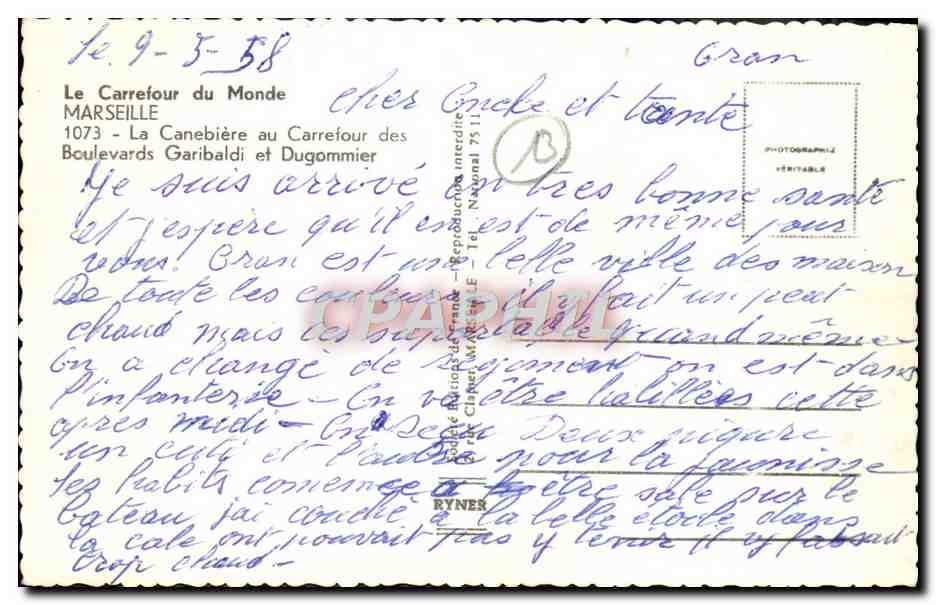 le. 9-5-58
Oran
Le Carrefour du Monde
MARSEILLE
1073 - La Canebière au Carrefour des
Boulevards Garibaldi et Dugommier
cher Oncle et tante
B
PHOTOGRAPHIE
VÉRITABLE
Je suis arrivé en très bonne santé
et j'espère qu'il en est de même pour
vous. Oran est une belle ville des maison
De toute les couleurs il y fait un peut
chaud mais ces suportable quand même
On a changé de régiment on est dans
l'infanterie - On va être habillées cette
après midi - On a Deux piqure
un cuti et l'autre pour la jaunisse
les habits comence a être sale sur le
bateau j'ai couché à la belle étoile dans
la cale ont pouvait pas y tenir il y faisait
trop chaud -
Société Editions de France - Reproduction interdite
2, rue Clapier, MARSEILLE - Tél. National 75 11
RYNER
CPAPHIL